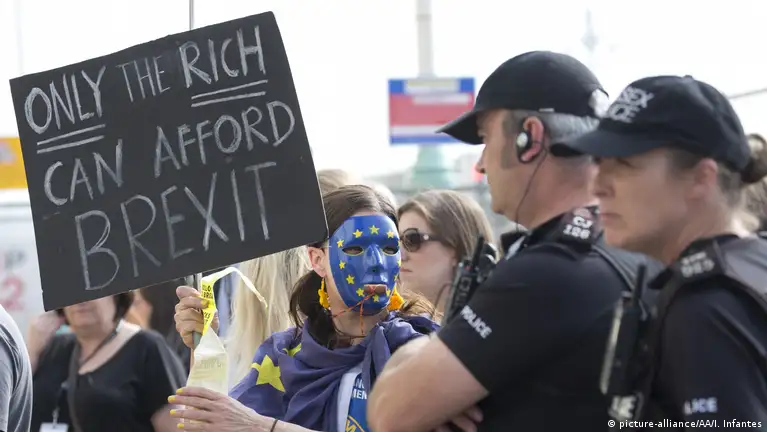 ONLY THE RICH
CAN AFFORD
BREXIT
POLICE
LICE
© picture-alliance/AA/I. Infantes